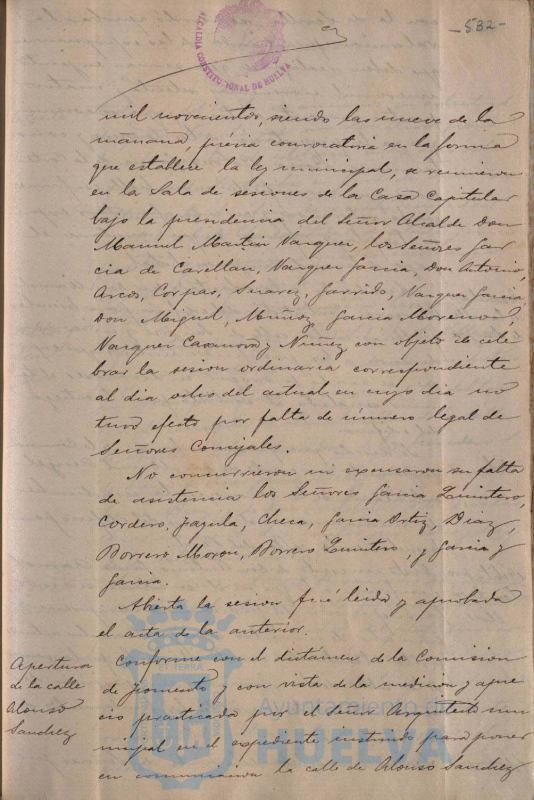 ALCALDIA CONSTITUCIONAL DE HUELVA
-532-
mil novecientos, siendo las nueve de la
mañana, prévia convocatoria en la forma
que establece la ley municipal, se reunieron
en la Sala de sesiones de la Casa Capitular
bajo la presidencia del Señor Alcalde Don
Manuel Martin Vazquez, los Señores Gar
cia de Castellan, Vazquez Garcia, Don Antonio,
Arcos, Corpas, Suarez, Garrido, Vazquez Garcia,
Don Miguel, Muñoz, Garcia Moreno,
Vazquez Casanova y Nuñez con objeto de cele
brar la sesion ordinaria correspondiente
al dia ocho del actual en cuyo dia no
tuvo efecto por falta de número legal de
Señores Concejales.
No concurrieron ni excusaron su falta
de asistencia los Señores Garcia Quintero,
Cordero, Checa, Garcia Ortiz, Diaz,
Borrero Moron, Borrero Quintero, y Garcia y
Garcia.
Abierta la sesion fué leida y aprobada
el acta de la anterior.
Apertura
de la calle
Alonso
Sanchez
Conforme con el dictamen de la Comision
de fomento y con vista de la medicion y apre
cio practicada por el Señor Arquitecto mu
nicipal en el expediente instruido para poner
en comunicacion la calle de Alonso Sanchez
Ayuntamiento de
HUELVA